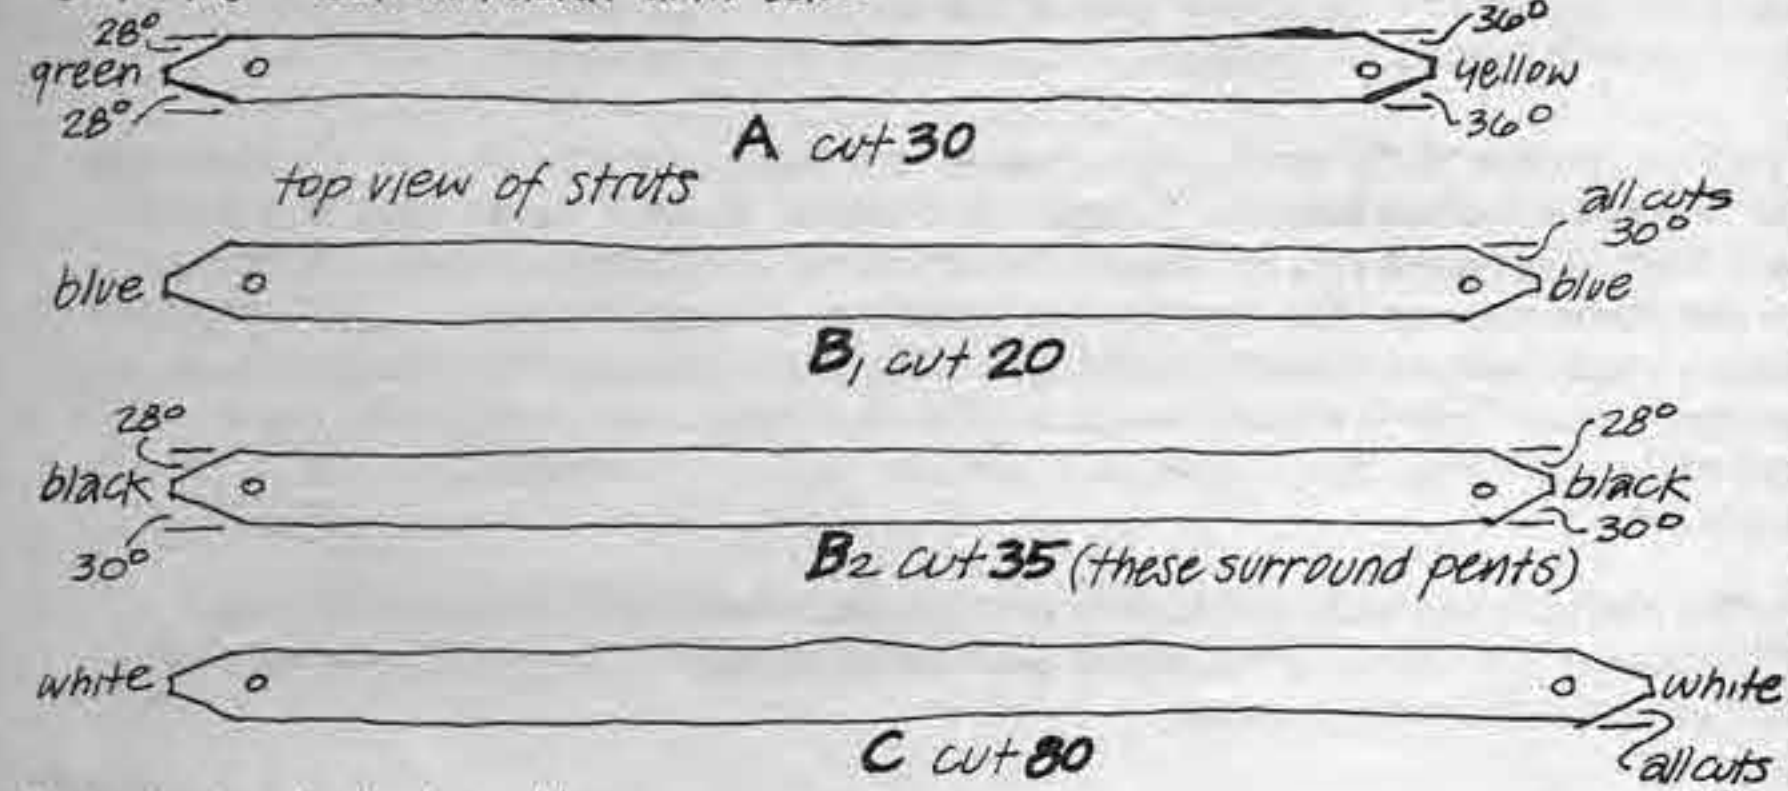 28° 36°
green yellow
28° 36°
A cut 30
top view of struts
all cuts
30°
blue blue
B1 cut 20
28° 28°
black black
30° 30°
B2 cut 35 (these surround pents)
white white
C cut 80
all cuts